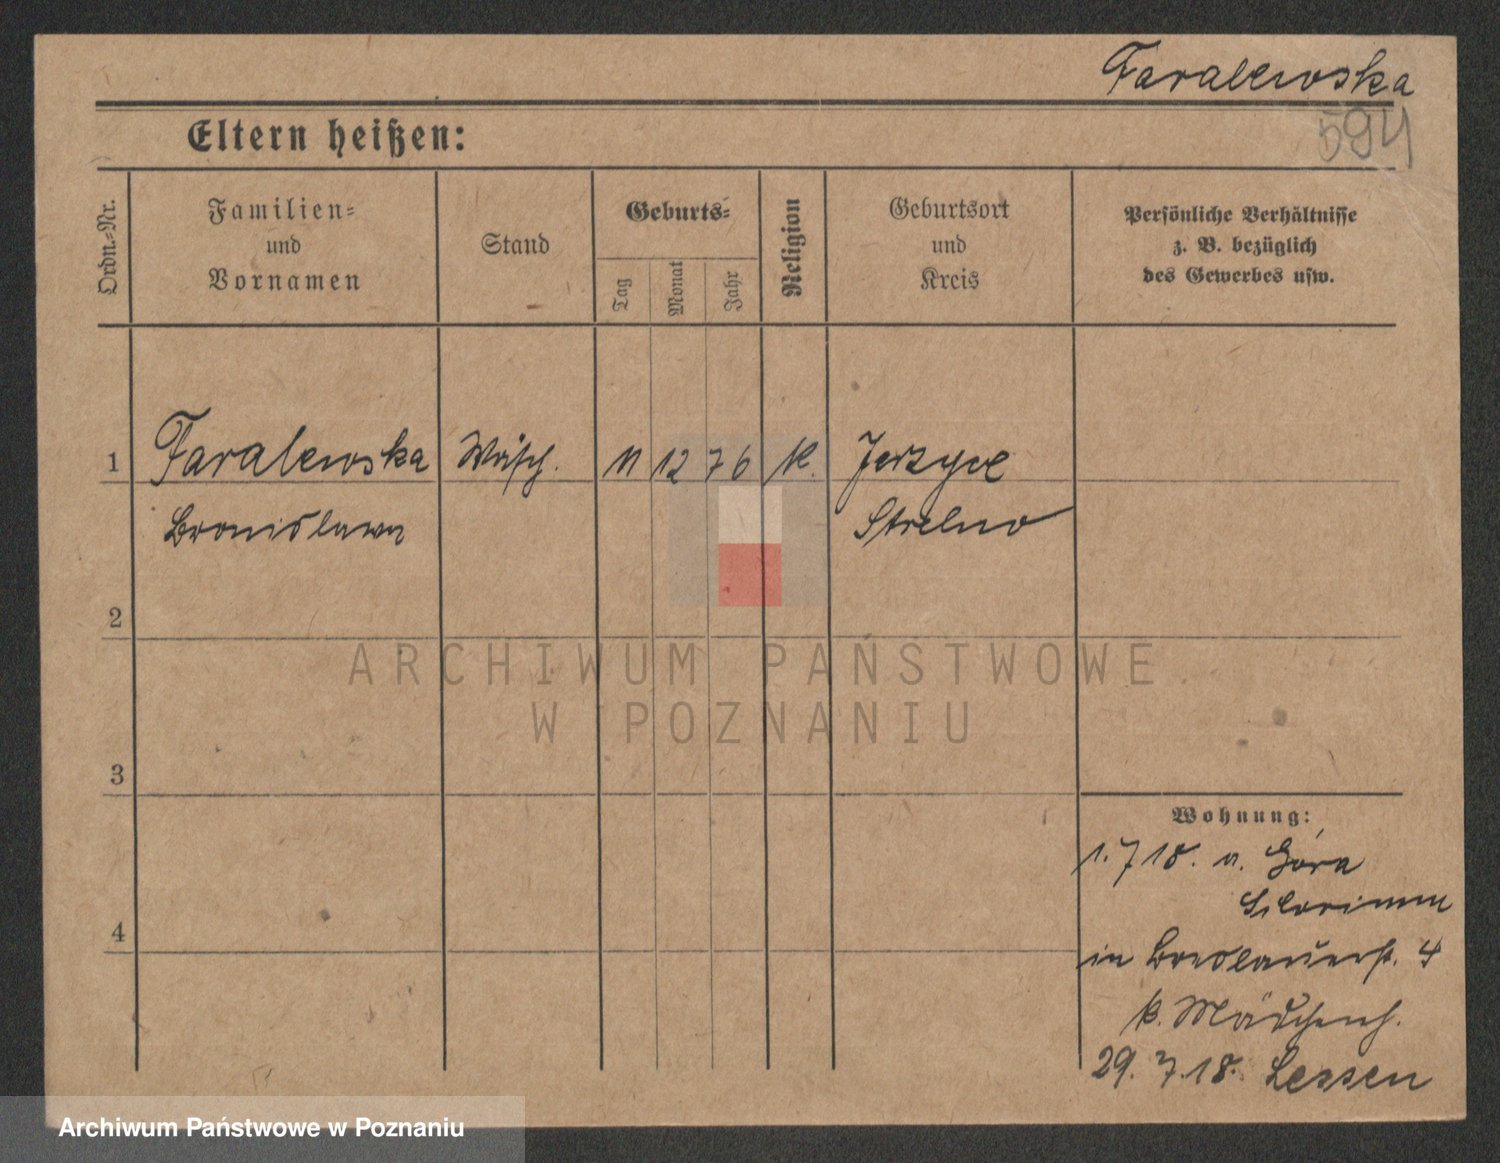 Faralewska
594
Eltern heißen:
Ordn.-Nr.
Familien-
und
Vornamen
Stand
Geburts-
Tag
Monat
Jahr
Religion
Geburtsort
und
Kreis
Persönliche Verhältnisse
z. B. bezüglich
des Gewerbes usw.
1 Faralewska Wäsch. 11 12 76 K. Jerzyce
Bronislawa Strelno
2
ARCHIWUM PAŃSTWOWE
W POZNANIU
3
Wohnung:
1.7 18. a. Góra
4
in Breslauerst. 4
k. Mädchenh.
29. 7. 18. Lessen
Archiwum Państwowe w Poznaniu